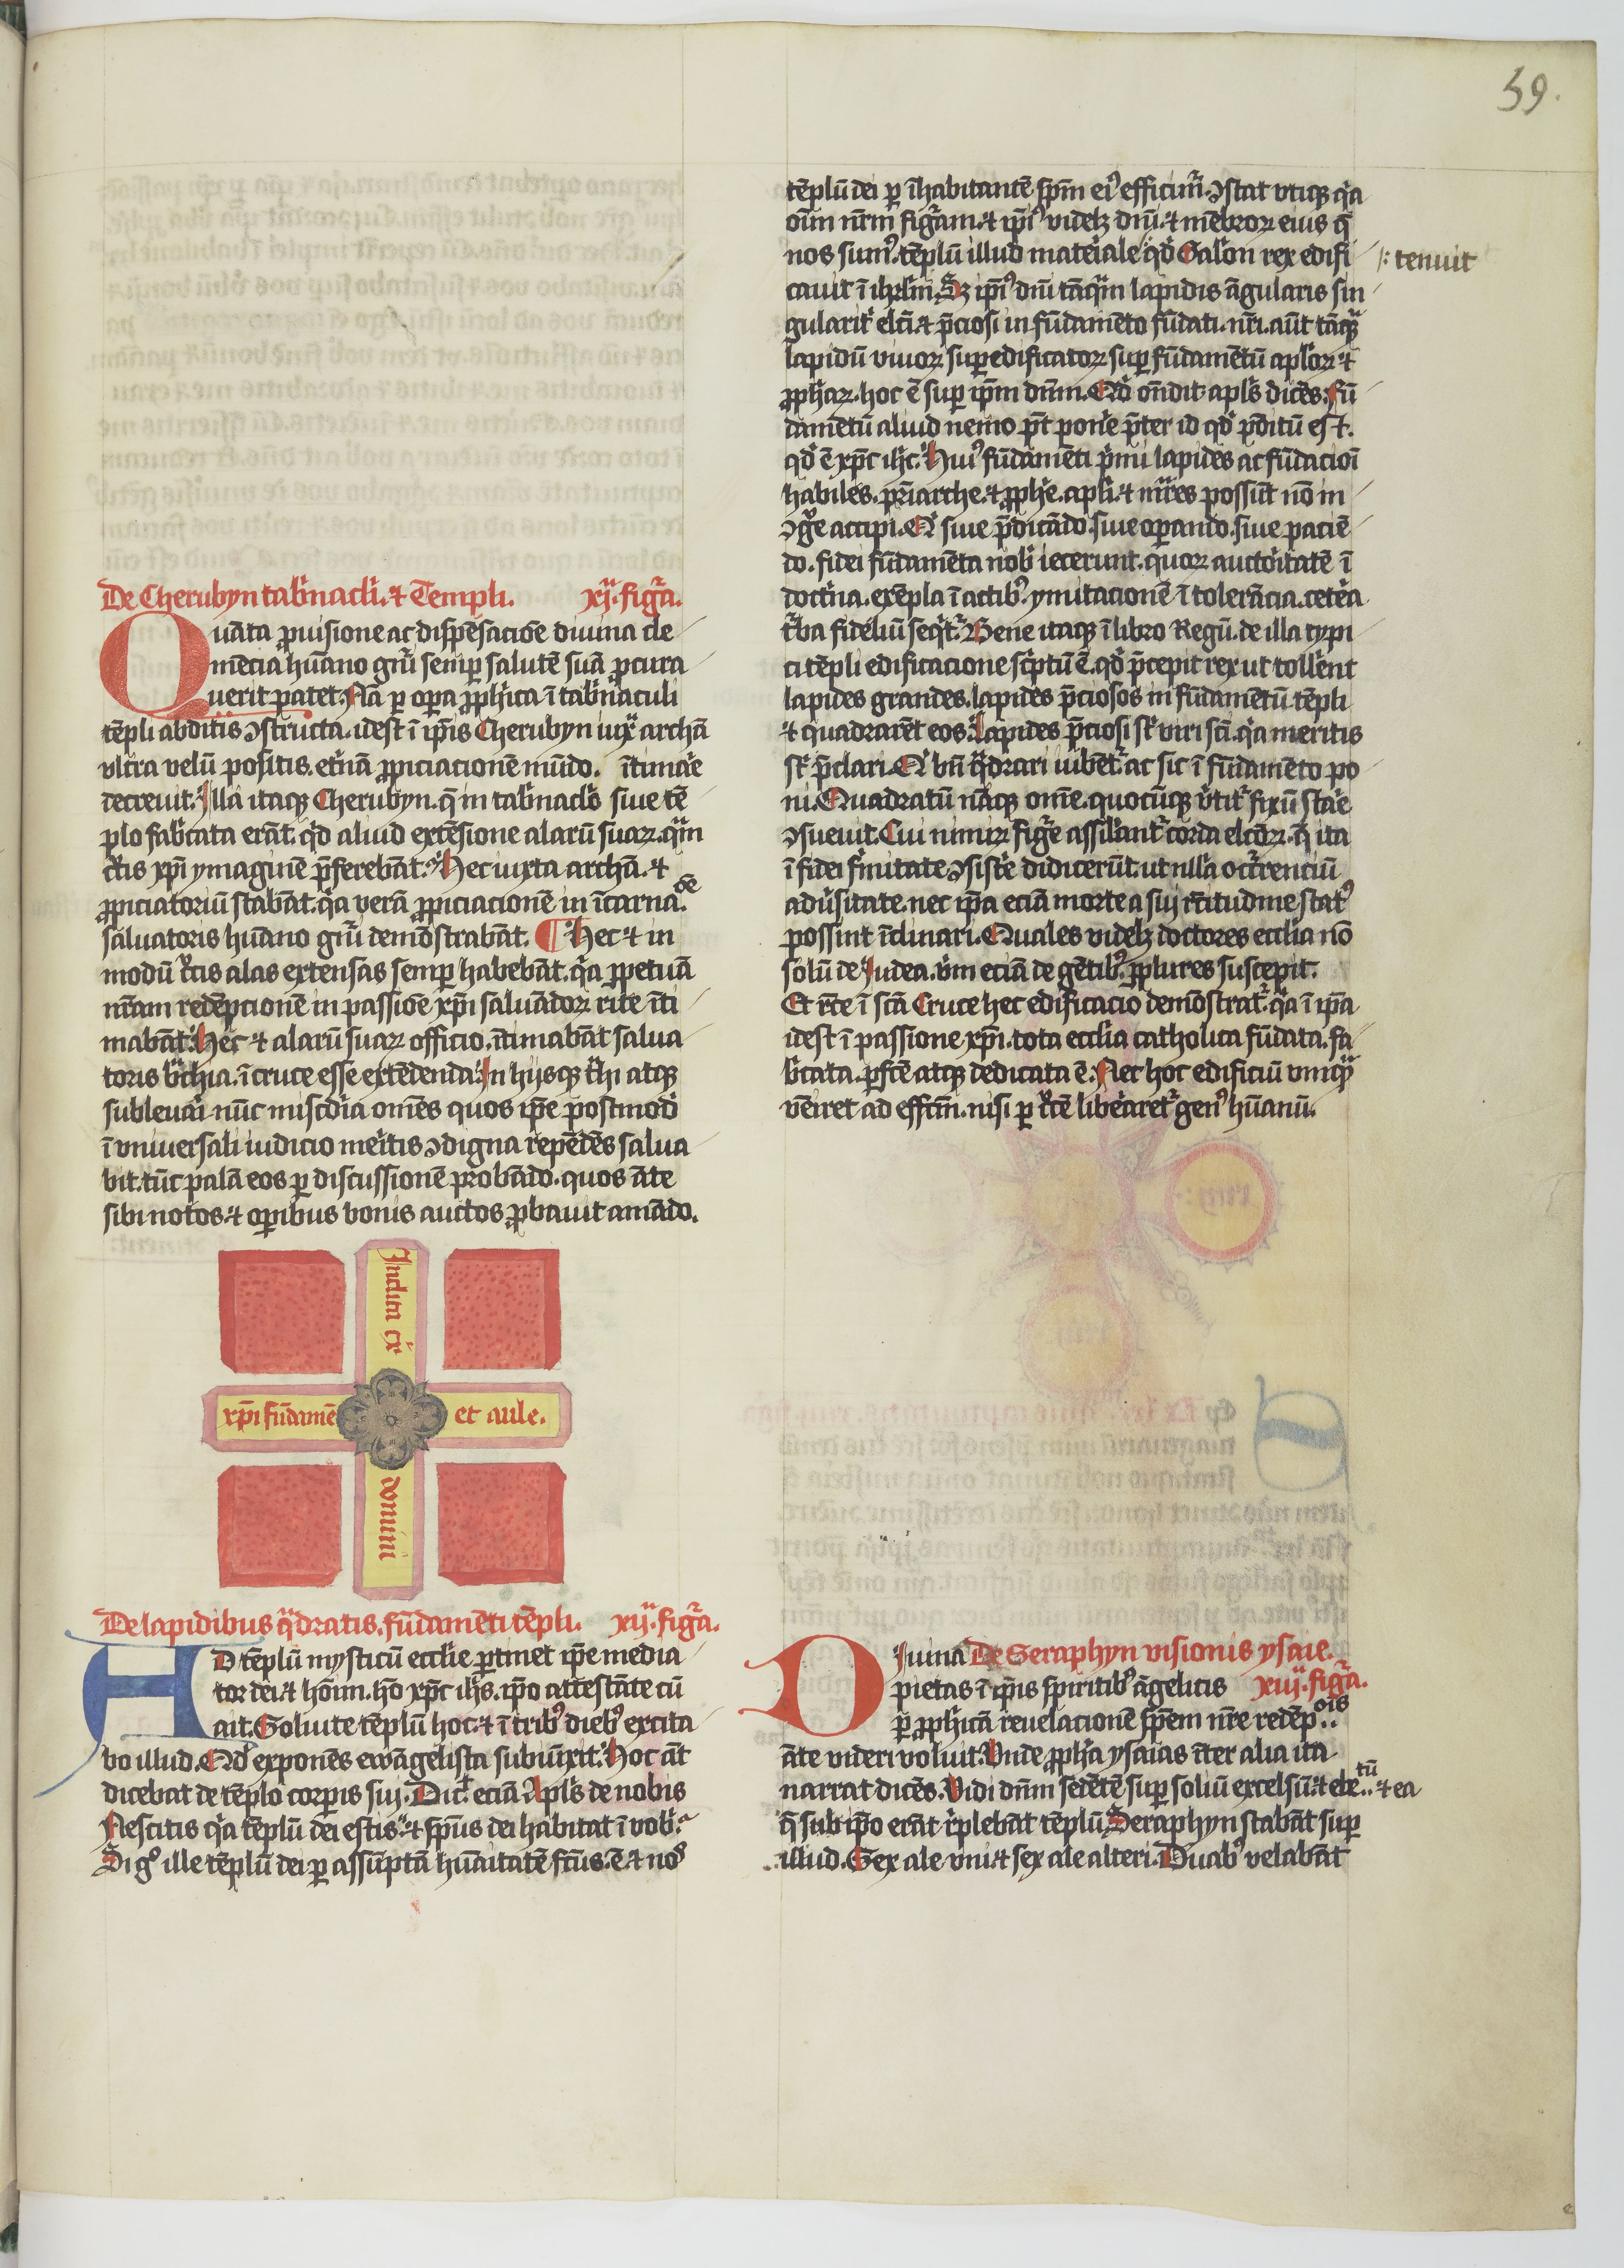 59.
De Cherubyn tab̉nacli. ⁊ Templi. xj. figᷓa.
Quãta ꝓuisione ac dispẽsacioẽ diuina cle
mẽcia hũano gñi semꝑ salutẽ suã ꝓcura
uerit patet. Nã ꝑ oꝑa ꝓph̉ica ĩ tab̉naculi
tẽpli abditis ꝯstructa. idest ĩ ip̃is Cherubyn iuxᷓ archã
vlt̉ra velũ positis. et̉nã ꝓpiciacionẽ mũdo. ĩtimar̉e
decreuit. Illa itaqꝫ Cherubyn. q̃ in tab̉naclo siue tẽ
plo fab̉cata erãt. qͥd aliud extẽsione alarũ suaꝝ. qᷓm
c̉cis xp̃i ymaginẽ p̃ferebãt. Hec iuxta archã. ⁊
ꝓpiciatoriũ stabãt. qͥa verã ꝓpiciacionẽ in ĩcarna.ᵒᷠᵉ
saluatoris hũano gñi demõstrabãt. ¶ Hec ⁊ in
modũ c̉cis alas extensas semꝑ habebãt. qͥa ꝑpetuã
nr̃am redẽpcionẽ in passioẽ xp̃i saluãdoꝝ rite ĩti
mabãt. Hec ⁊ alarũ suaꝝ officio. ĩtimabãt salua
toris b̉chia. ĩ cruce esse extẽdenda. In hijsqꝫ t̉hi atqꝫ
subleuari nũc mis̃cdia omẽs quos ip̃e postmod̉
ĩ vniuersali iudicio mer̉itis ꝯdigna repẽdẽs salua
bit. tũc palã eos ꝑ discussionẽ probãdo. quos ãte
sibi notos ⁊ oꝑibus bonis auctos ꝓbauit amãdo.
Inclita cͥx
xp̃i fũdamẽ et aule.
domini
De lapidibus qᷓdratis. fũdamẽti tẽpli. xij. figᷓa.
AD tẽplũ mysticũ eccl̉ie ꝑtinet ip̃e media
tor dei ⁊ hoĩm. hõ xp̃c ih̃s. ip̃o attestãte cũ
ait. Soluite tẽplũ hoc. ⁊ ĩ tribꝰ diebꝰ excita
bo illud. Qd̉ exponẽs ewãgelista subiũxit. Hoc aũt
dicebat de tẽplo corꝑis sij. Dicͭ eciã Apl̉s de nobis
Nescitis qͥa tẽplũ dei estis. ⁊ sp̃us dei habitat ĩ vob̉.
Sigͦ ille tẽplũ dei ꝑ assũptã hũaitatẽ fc̃us. ẽ ⁊ nos
tẽplũ dei ꝑ ĩhabitantẽ sp̃m eiꝰ efficimᷣ. ꝯstat vtiqꝫ qͥa
oĩm nr̃m figᷓam. ⁊ ip̃iꝰ videlꝫ dñi. ⁊ mẽbroꝝ eius q̃
nos sumꝰ. tẽplũ illud mater̉iale qd̉ Salõn rex edifi tenuit
cauit ĩ ih̉rl̉m. Sꝫ ip̃iꝰ dñi tãqᷓm lapidis ãgularis sin
gularit̉ el̉ci. ⁊ p̃ciosi in fũdamẽto fũdati. nr̃i. aũt tãqᷓ
lapidũ viuoꝝ suꝑedificatoꝝ suꝑ fũdamẽtũ apl̉oꝝ ⁊
ꝓph̉aꝝ. hoc ẽ suꝑ ip̃m dñm. Qd̉ on̉dit apl̉s dicẽs. Fũ
damẽtũ aliud nemo p̃t poner̉e p̃ter id qd̉ p̃ositũ est.
qd̉ ẽ xp̃c ih̉c. Huiꝰ fũdamẽti p̉mi lapides ac fũdacioi
habiles. pr̃iarche. ⁊ ꝓph̉e. apl̉i. ⁊ mr̃es possũt nõ in
ꝯgͬue accipi. Qͥ siue p̃dicãdo. siue oꝑando. siue paciẽ
do. fidei fũdamẽta nob̉ iecerunt. quoꝝ auctor̉itatẽ ĩ
doctͥna. exẽpla ĩ actibꝰ. ymitacionẽ ĩ toler̃acia. ceter̉a
tᷣba fideliũ seqᷣtᷣ. Bene itaqꝫ ĩ libro Regũ. de illa typi
ci tẽpli edificacione sc̉ptũ ẽ. qd̉ p̃cepit rex ut toller̉ent
lapides grandes. lapides p̃ciosos in fũdamẽtũ tẽpli
⁊ quadrarẽt eos. Lapides p̃ciosi st̉ viri sc̃i. qͥa meritis
st̉ p̃clari. Qͥ bñ qᷓdrari iubẽtᷣ. ac sic ĩ fũdamẽto po
ni. Quadratũ nãqꝫ om̃e. quocũqꝫ v̉titᷣ fixũ star̉e
ꝯsueuit. Cui nimiꝝ figᷓe assil̉antᷣ corda el̉coꝝ. q̃ ita
ĩ fidei f̉mitate ꝯsister̉e didicerũt. ut nl̉la occᷣrenciũ
adũsitate. nec ip̃a eciã morte a sij r̃citudine statꝰ
possint ĩclinari. Quales videlꝫ doctores eccl̉ia nõ
solũ de Iudea. v̉m eciã de gẽtibꝰ. ꝓplures suscepit.
Et rc̃e ĩ sc̃a Cruce hec edificacio demõstratᷣ. qͥa ĩ ip̃a
idest ĩ passione xp̃i. tota eccl̉ia catholica fũdata. fa
b̉cata. ꝑfcẽ atqꝫ dedicata ẽ. Nec hoc edificiũ vmqᷓ
vẽiret ad effc̃m. nisi ꝑ c̉cẽ liber̉aretᷣ genꝰ hũanũ.
Diuina De Seraphyn visionis ysaie.
pietas ĩ ip̃is spiritibꝰ ãgelicis xiij. figᷓa.
ꝑ ꝓph̉icã reuelacionẽ sp̃em nr̃e redẽp..ᵒⁱˢ
ãte videri voluit. Vnde ꝓph̉a ysaias ĩter alia ita
narrat dicẽs. Vidi dñm sedẽtẽ suꝑ soliũ excelsũ. ⁊ ele..ᵗᵘ̃ ⁊ ea
q̃ sub ip̃o erãt r̉plebãt tẽplũ. Seraphyn stabãt suꝑ
illud. Sex ale vni. ⁊ sex ale alteri. Duabꝰ velabãt